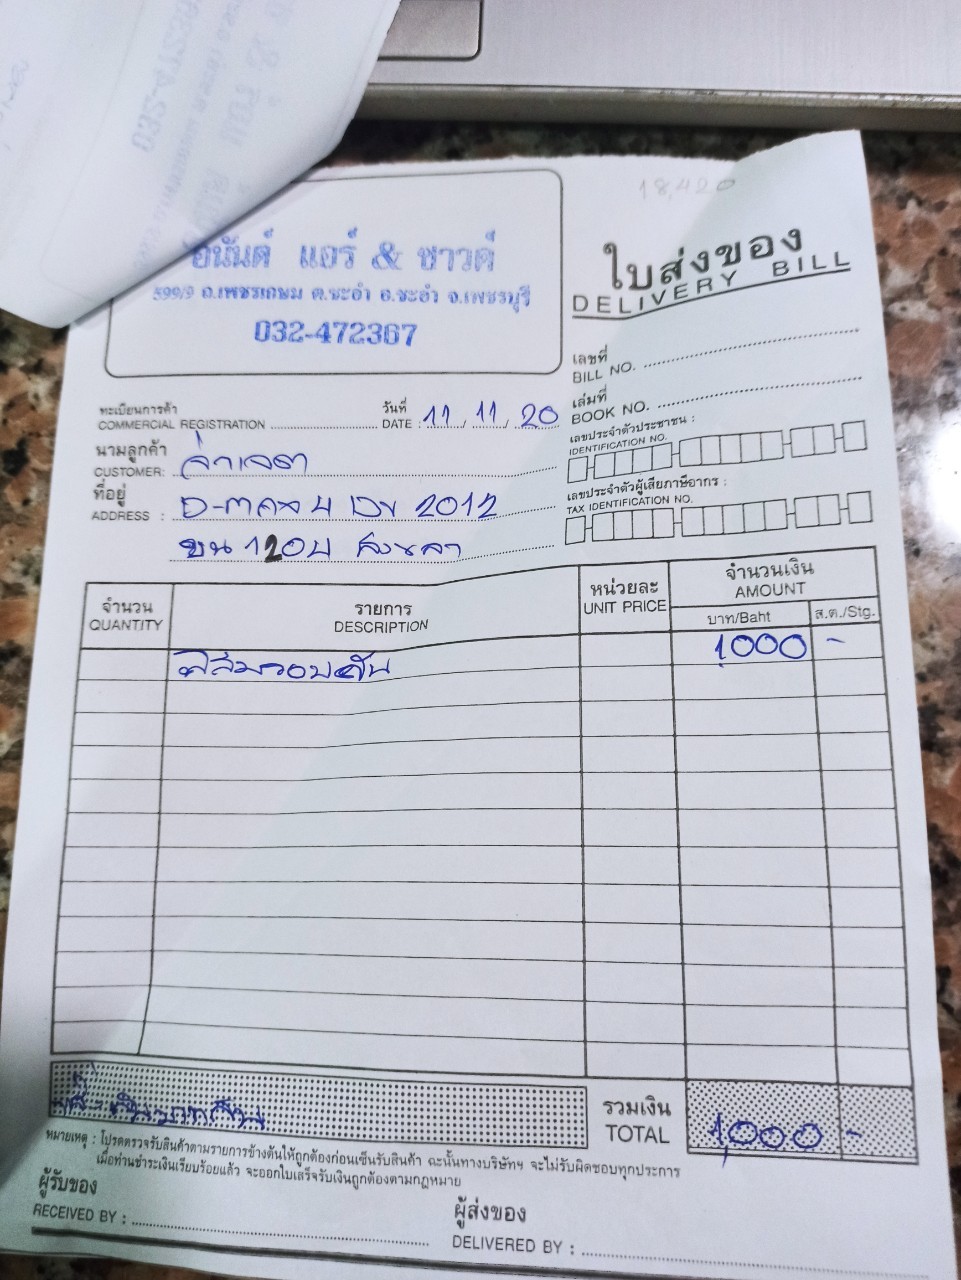 18,420
นันต์ แอร์ & ซาวด์
599/9 ถ.เพชรเกษม ต.ชะอำ อ.ชะอำ จ.เพชรบุรี
032-472367
ใบส่งของ
DELIVERY BILL
เลขที่
BILL NO.
เล่มที่
BOOK NO.
ทะเบียนการค้า
COMMERCIAL REGISTRATION
วันที่
DATE : 11 / 11 / 20
เลขประจำตัวประชาชน :
IDENTIFICATION NO.
นามลูกค้า
CUSTOMER:
เลขประจำตัวผู้เสียภาษีอากร :
TAX IDENTIFICATION NO.
ที่อยู่
ADDRESS : 2012
ขน 120บ สงขลา
จำนวน
QUANTITY
รายการ
DESCRIPTION
หน่วยละ
UNIT PRICE
จำนวนเงิน
AMOUNT
บาท/Baht
ส.ต./Stg.
ฟิล์มรอบคัน 1000 -
รวมเงิน
TOTAL
1,000 -
หมายเหตุ : โปรดตรวจรับสินค้าตามรายการข้างต้นให้ถูกต้องก่อนเซ็นรับสินค้า ฉะนั้นทางบริษัทฯ จะไม่รับผิดชอบทุกประการ
เมื่อท่านชำระเงินเรียบร้อยแล้ว จะออกใบเสร็จรับเงินถูกต้องตามกฎหมาย
ผู้รับของ
RECEIVED BY :
ผู้ส่งของ
DELIVERED BY :